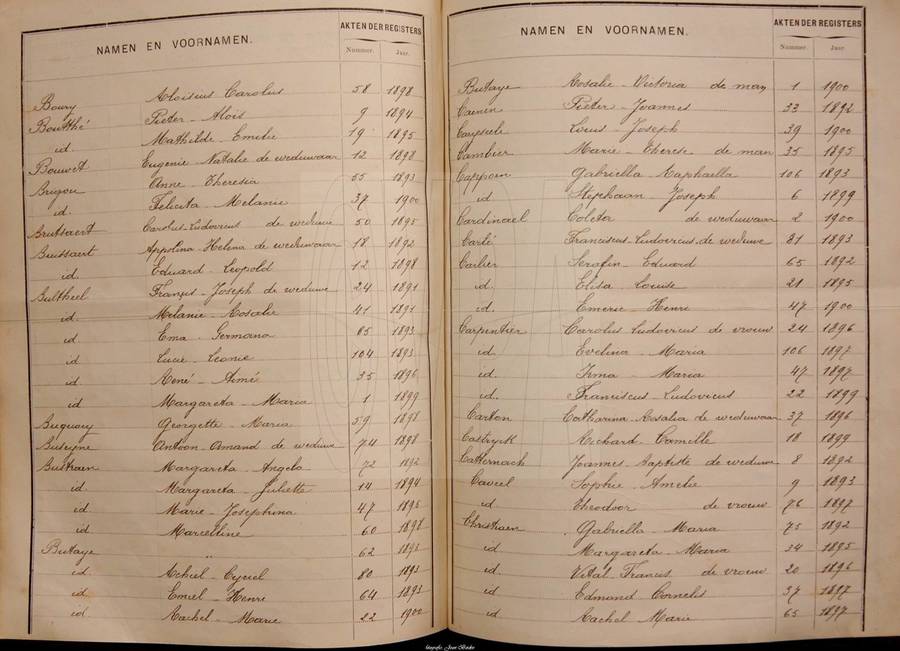 NAMEN EN VOORNAMEN. AKTEN DER REGISTERS
Nummer. Jaar.
Boury Aloisius Carolus 58 1898
Boutthé Pieter - Aloïs 9 1894
id. Mathilde - Emilie 19 1895
Bouvet Eugenie Natalie de weduwaar 12 1898
Brigou Anne - Theresia 55 1893
id. Felicita - Melanie 37 1900
Brutsaert Carolus Ludovicus de weduwe 50 1895
Buissaert Appolina - Helina de weduwaar 18 1892
id. Eduard - Leopold 12 1898
Bultheel François - Joseph de weduwe 24 1891
id. Melanie - Rosalie 41 1891
id. Ema - Germana 85 1893
id. Lucie - Leonie 104 1893
id. René - Aimé 35 1896
id Margareta - Maria 1 1899
Buquoy Georgette - Maria 59 1898
Buseyne Antoon - Amand de weduwe 74 1898
Bustraen Margareta - Angela 72 1892
id. Margareta - Juliette 14 1894
id Marie - Josephina 47 1895
id Marcelline 60 1898
Butaye „ 62 1893
id. Achiel - Cyriel 80 1893
id. Emiel - Henri 64 1893
id Rachel - Marie 22 1900
NAMEN EN VOORNAMEN. AKTEN DER REGISTERS
Nummer. Jaar.
Butaye Rosalie - Victoria de man 1 1900
Caenen Pieter - Joannes 33 1892
Caryseele Louis - Joseph 39 1900
Cambier Marie - Therese de man 35 1895
Cappoen Gabriella - Raphaella 106 1893
id Stephaan - Joseph 6 1899
Cardinael Coleta de weduwaar 2 1900
Carlé Franciscus - Ludovicus de weduwe 81 1893
Carlier Serafin - Eduard 65 1892
id. Elisa - Louise 21 1895
id. Emerie - Henri 47 1900
Carpentier Carolus Ludovicus de vrouw 24 1896
id. Evelina - Maria 106 1897
id. Irma - Maria 47 1897
id. Franciscus - Ludovicus 22 1899
Carton Catharina - Rosalia de weduwaar 37 1896
Castryck Richard - Camille 18 1899
Catternach Joannes - Baptiste de weduwe 8 1892
Caveel Sophie - Amelie 9 1893
id Theodoor de vrouw 76 1897
Christiaen Gabriella - Maria 75 1892
id Margareta - Maria 34 1895
id Vital - Francis de vrouw 20 1896
id Edmond Cornelis 37 1897
id Rachel Marie 65 1897